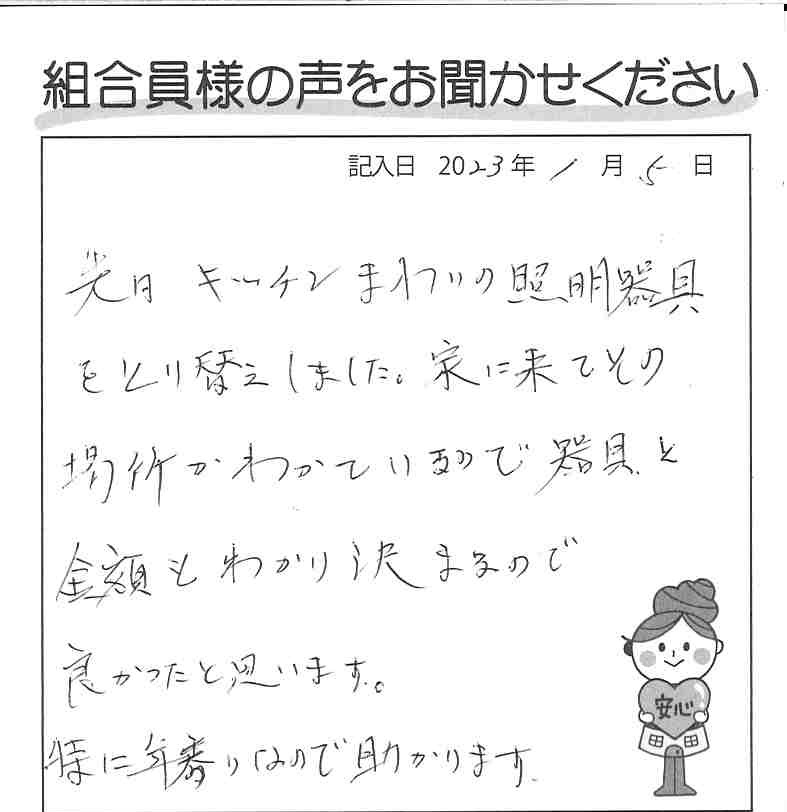 組合員様の声をお聞かせください
記入日 2023年 1月 5日
先日 キッチンまわりの照明器具
をとり替えしました。家に来てその
場所がわかているので器具と
金額もわかり決まるので
良かったと思います。
特に年寄りなので助かります。
安心